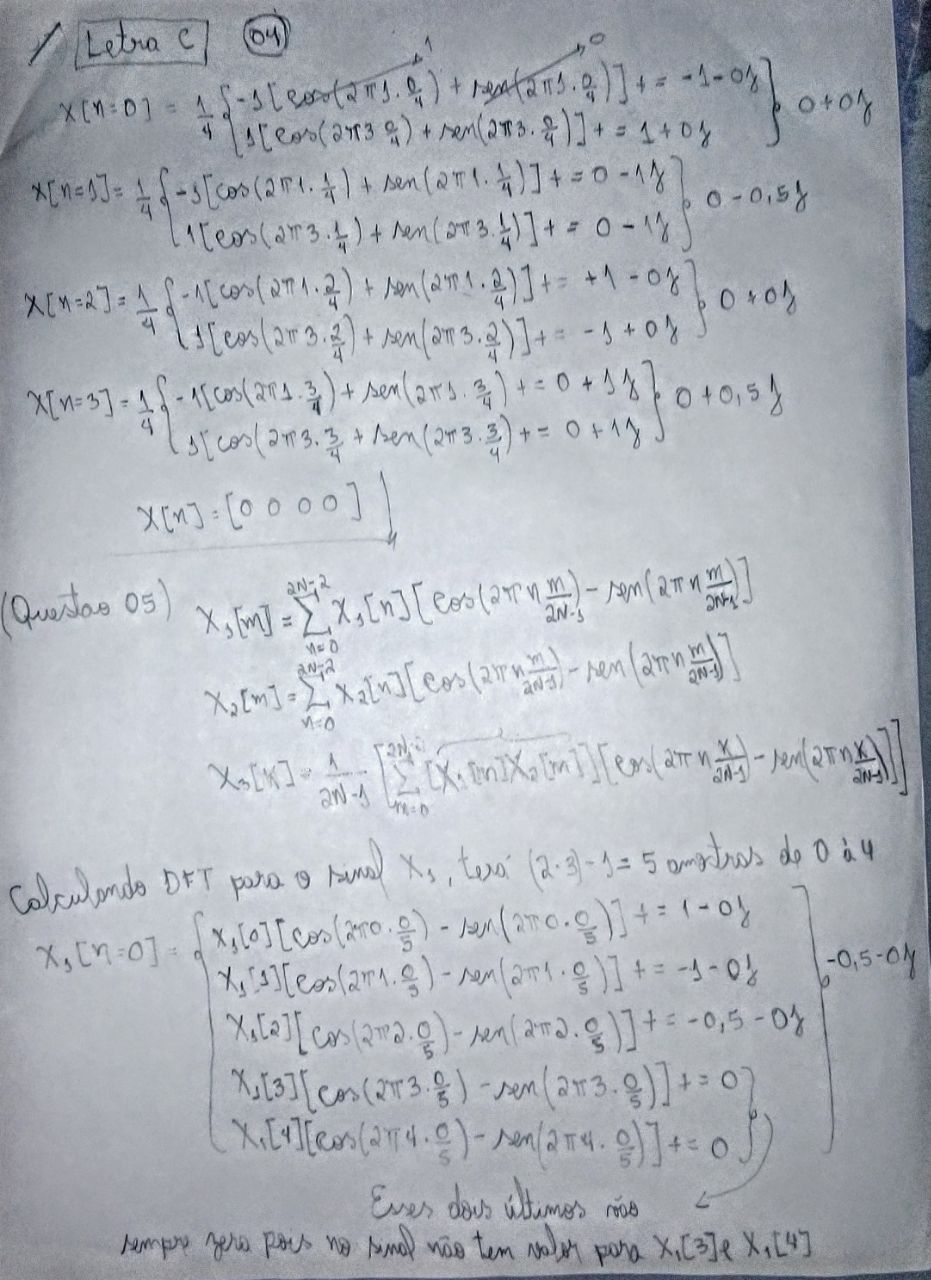 Letra C 04
X[n=0] = 1/4 { -1[cos(2π1.0/4) + sen(2π1.0/4)] += -1-0j } 0+0j
1 0
1[cos(2π3.0/4) + sen(2π3.0/4)] += 1+0j
X[n=1] = 1/4 { -1[cos(2π1.1/4) + sen(2π1.1/4)] += 0-1j } 0-0,5j
1[cos(2π3.1/4) + sen(2π3.1/4)] += 0-1j
X[n=2] = 1/4 { -1[cos(2π1.2/4) + sen(2π1.2/4)] += +1-0j } 0+0j
1[cos(2π3.2/4) + sen(2π3.2/4)] += -1+0j
X[n=3] = 1/4 { -1[cos(2π1.3/4) + sen(2π1.3/4) += 0+1j } 0+0,5j
1[cos(2π3.3/4 + sen(2π3.3/4) += 0+1j
X[n] = [0 0 0 0]
(Questao 05) X₁[m] = Σ_{n=0}^{2N-2} X₁[n][cos(2πn m/2N-1) - sen(2πn m/2N-1)]
X₂[m] = Σ_{n=0}^{2N-2} X₂[n][cos(2πn m/2N-1) - sen(2πn m/2N-1)]
X₃[K] = 1/2N-1 [Σ_{m=0}^{2N-2} [X₁[m]X₂[m]][cos(2πn K/2N-1) - sen(2πn K/2N-1)]]
Calculando DFT para o sinal X₁, terá (2.3)-1=5 amostras de 0 à 4
X₁[n=0] = { X₁[0][cos(2π0.0/5) - sen(2π0.0/5)] += 1-0j } -0,5-0j
X₁[1][cos(2π1.0/5) - sen(2π1.0/5)] += -1-0j
X₁[2][cos(2π2.0/5) - sen(2π2.0/5)] += -0,5-0j
X₁[3][cos(2π3.0/5) - sen(2π3.0/5)] += 0
X₁[4][cos(2π4.0/5) - sen(2π4.0/5)] += 0
Esses dois últimos são
sempre zero pois no sinal não tem valor para X₁[3] e X₁[4]